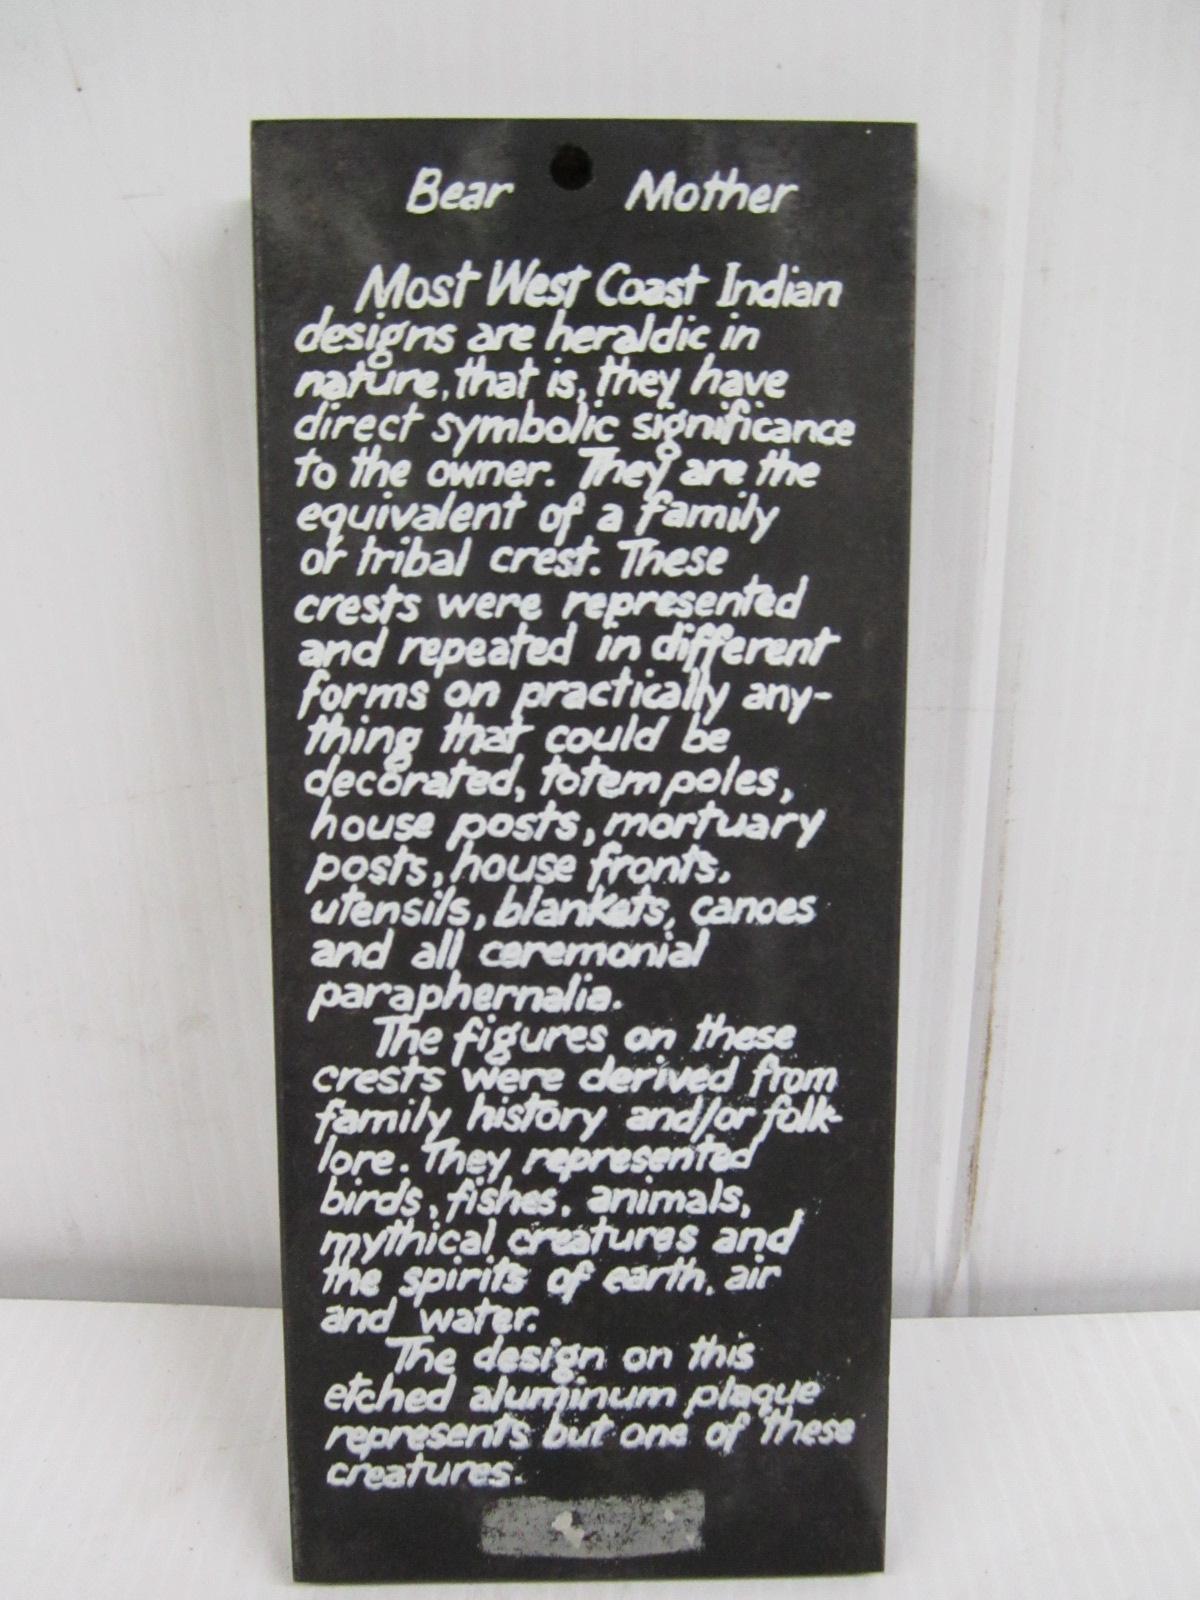 Bear Mother
Most West Coast Indian
designs are heraldic in
nature, that is, they have
direct symbolic significance
to the owner. They are the
equivalent of a family
or tribal crest. These
crests were represented
and repeated in different
forms on practically any-
thing that could be
decorated, totem poles,
house posts, mortuary
posts, house fronts,
utensils, blankets, canoes
and all ceremonial
paraphernalia.
The figures on these
crests were derived from
family history and/or folk-
lore. They represented
birds, fishes, animals,
mythical creatures and
the spirits of earth, air
and water.
The design on this
etched aluminum plaque
represents but one of these
creatures.